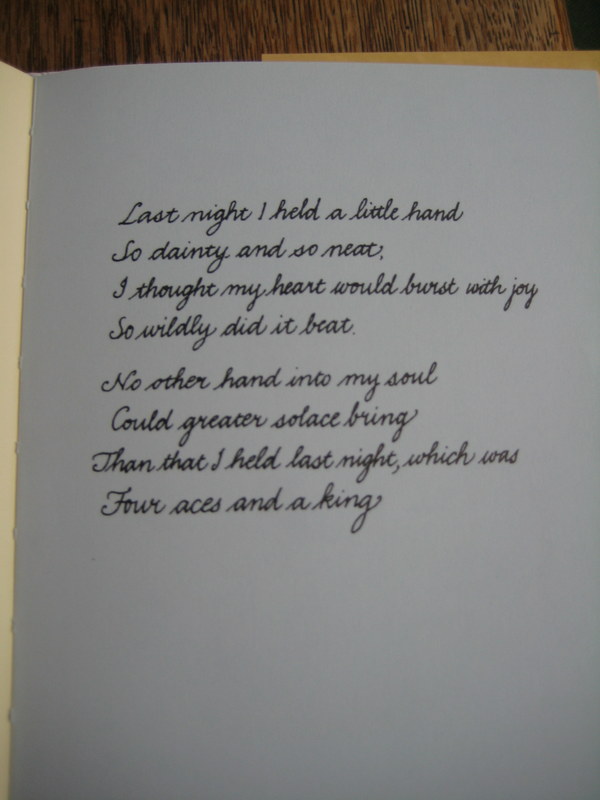 Last night I held a little hand
So dainty and so neat,
I thought my heart would burst with joy
So wildly did it beat.
No other hand into my soul
Could greater solace bring
Than that I held last night, which was
Four aces and a king